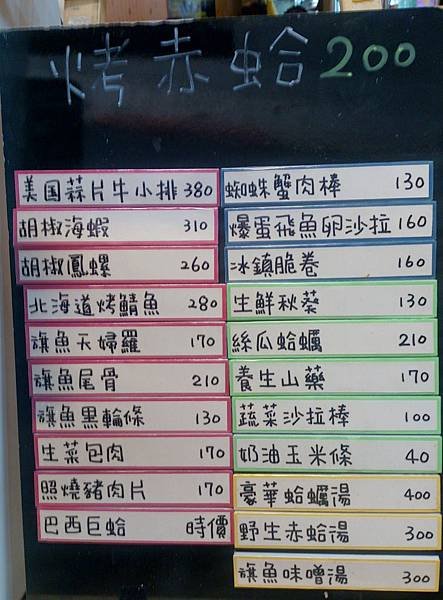 烤赤蛤200
美国蒜片牛小排 380
胡椒海蝦 310
胡椒鳳螺 260
北海道烤鯖魚 280
旗魚天婦羅 170
旗魚尾骨 210
旗魚黑輪條 130
生菜包肉 170
照燒豬肉片 170
巴西巨蛤 時價
蜘蛛蟹肉棒 130
爆蛋飛魚卵沙拉 160
冰鎮脆卷 160
生鮮秋葵 130
絲瓜蛤蠣 210
養生山藥 170
蔬菜沙拉棒 100
奶油玉米條 40
豪華蛤蠣湯 400
野生赤蛤湯 300
旗魚味噌湯 300